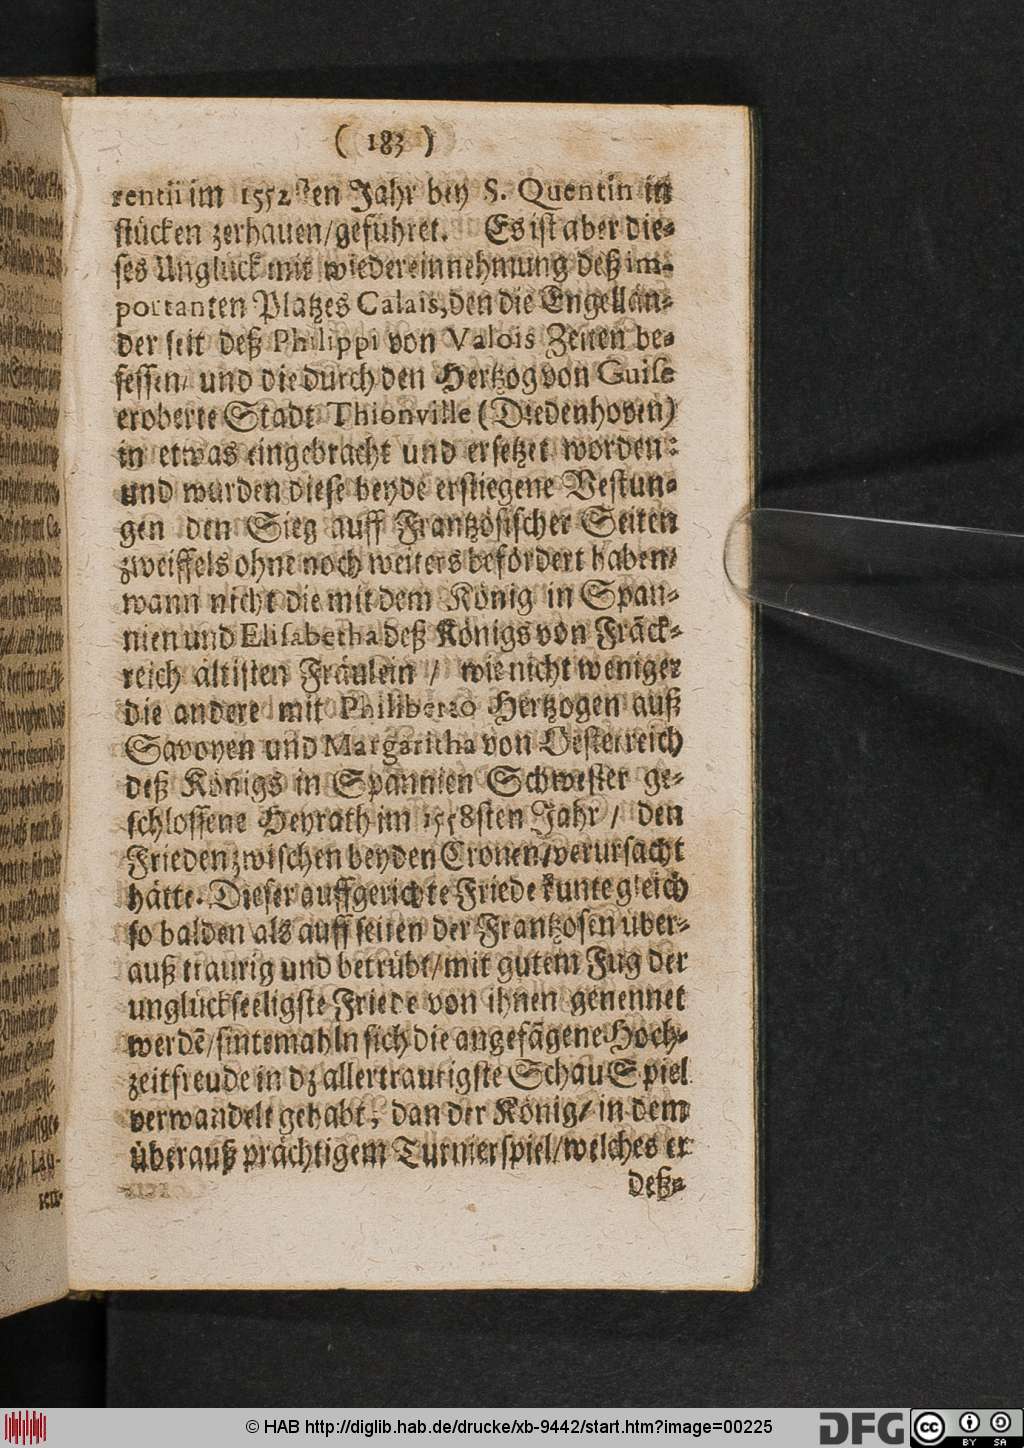 ( 183 )
rentii im 1552sten Jahr bey S. Quentin in
stücken zerhauen/geführet. Es ist aber die-
ses Unglück mit wiedereinnehmung deß im-
portanten Platzes Calais, den die Engellän-
der seit deß Philippi von Valois Zeiten be-
sessen/ und die durch den Hertzog von Guise
eroberte Stadt Thionville (Diedenhoven)
in etwas eingebracht und ersetzet worden:
und würden diese beyde erstiegene Vestun-
gen den Sieg auff Frantzösischer Seiten
zweiffels ohne noch weiters befördert haben/
wann nicht die mit dem König in Span-
nien und Elisabetha deß Königs von Fräck-
reich ältisten Fräulein / wie nicht weniger
die andere mit Philiberto Hertzogen auß
Savoyen und Margaritha von Oesterreich
deß Königs in Spannien Schwester ge-
schlossene Heyrath im 1558sten Jahr / den
Frieden zwischen beyden Cronen/verursacht
hätte. Dieser auffgerichte Friede kunte gleich
so balden als auff seiten der Frantzosen über-
auß traurig und betrübt/mit gutem Fug der
unglückseeligste Friede von ihnen genennet
werdē/sintemahln sich die angefāgene Hoch-
zeitfreude in dz allertraurigste SchauSpiel
verwandelt gehabt, dan der König/ in dem
überauß prächtigem Turnierspiel/welches er
deß-
© HAB http://diglib.hab.de/drucke/xb-9442/start.htm?image=00225
DFG
cc BY SA